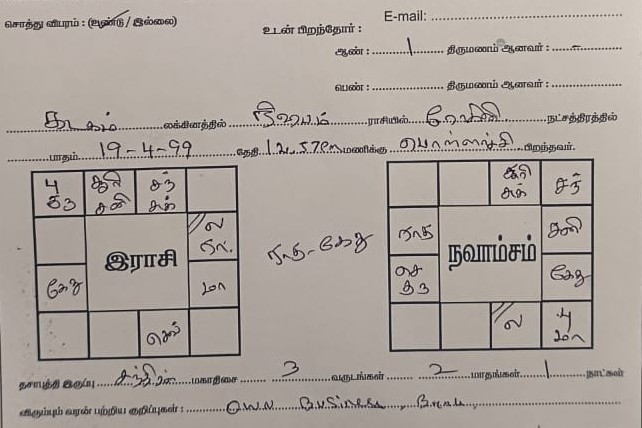 சொத்து விபரம் : (உண்டு / இல்லை)
E-mail:
உடன் பிறந்தோர் :
ஆண் : 1 திருமணம் ஆனவர் : -
பெண் : திருமணம் ஆனவர் :
கடகம் லக்கினத்தில் ரிஷபம் ராசியில் ரோகிணி நட்சத்திரத்தில்
பாதம் 19-4-99 தேதி 12.57 Pm மணிக்கு பொள்ளாச்சி பிறந்தவர்.
பு குரு சூரி சனி சந் சுக்
ல ரா.
இராசி
கேது மா
செவ்
ராகு-கேது
சூரி சுக் சந்
ராகு சனி
நவாம்சம்
செ குரு கேது
ல பு மா
தசாபுத்தி இருப்பு சந்திரன் மகாதிசை 3 வருடங்கள் 2 மாதங்கள் 1 நாட்கள்
விரும்பும் வரன் பற்றிய குறிப்புகள் : Own Business,